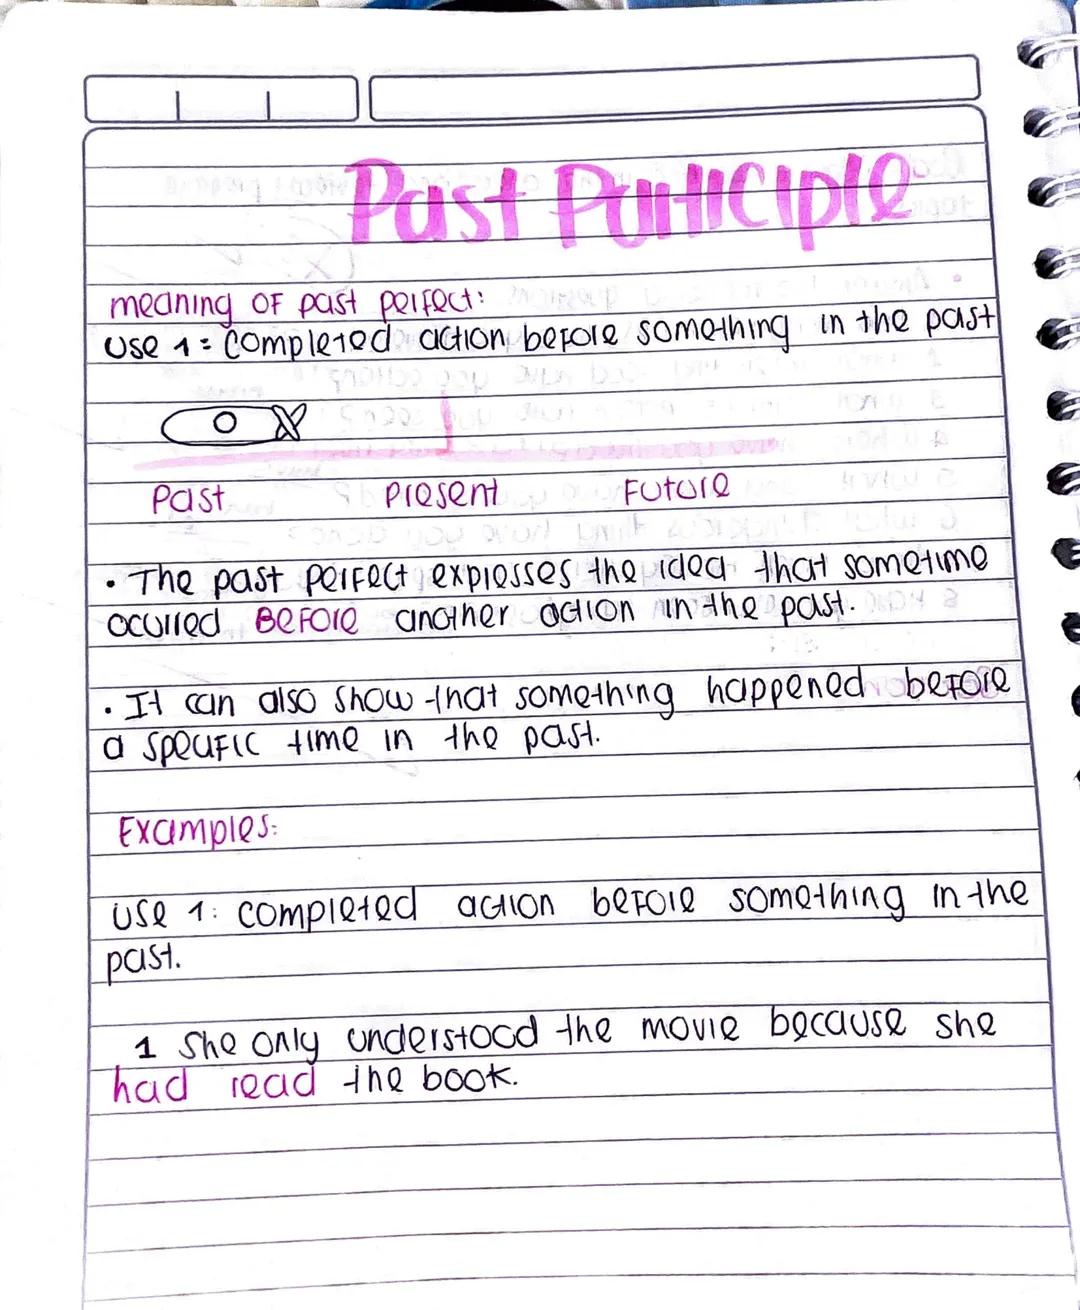 Past Participle
meaning of past perfect:
Use 1: Completed action before something in the past
Past Present Future
• The past perfect expresses the idea that sometime
ocurred BeFore another action in the past.
• It can also show that something happened before
a specific time in the past.
Examples:
Use 1: completed action before something in the
past.
1 She only understood the movie because she
had read the book.